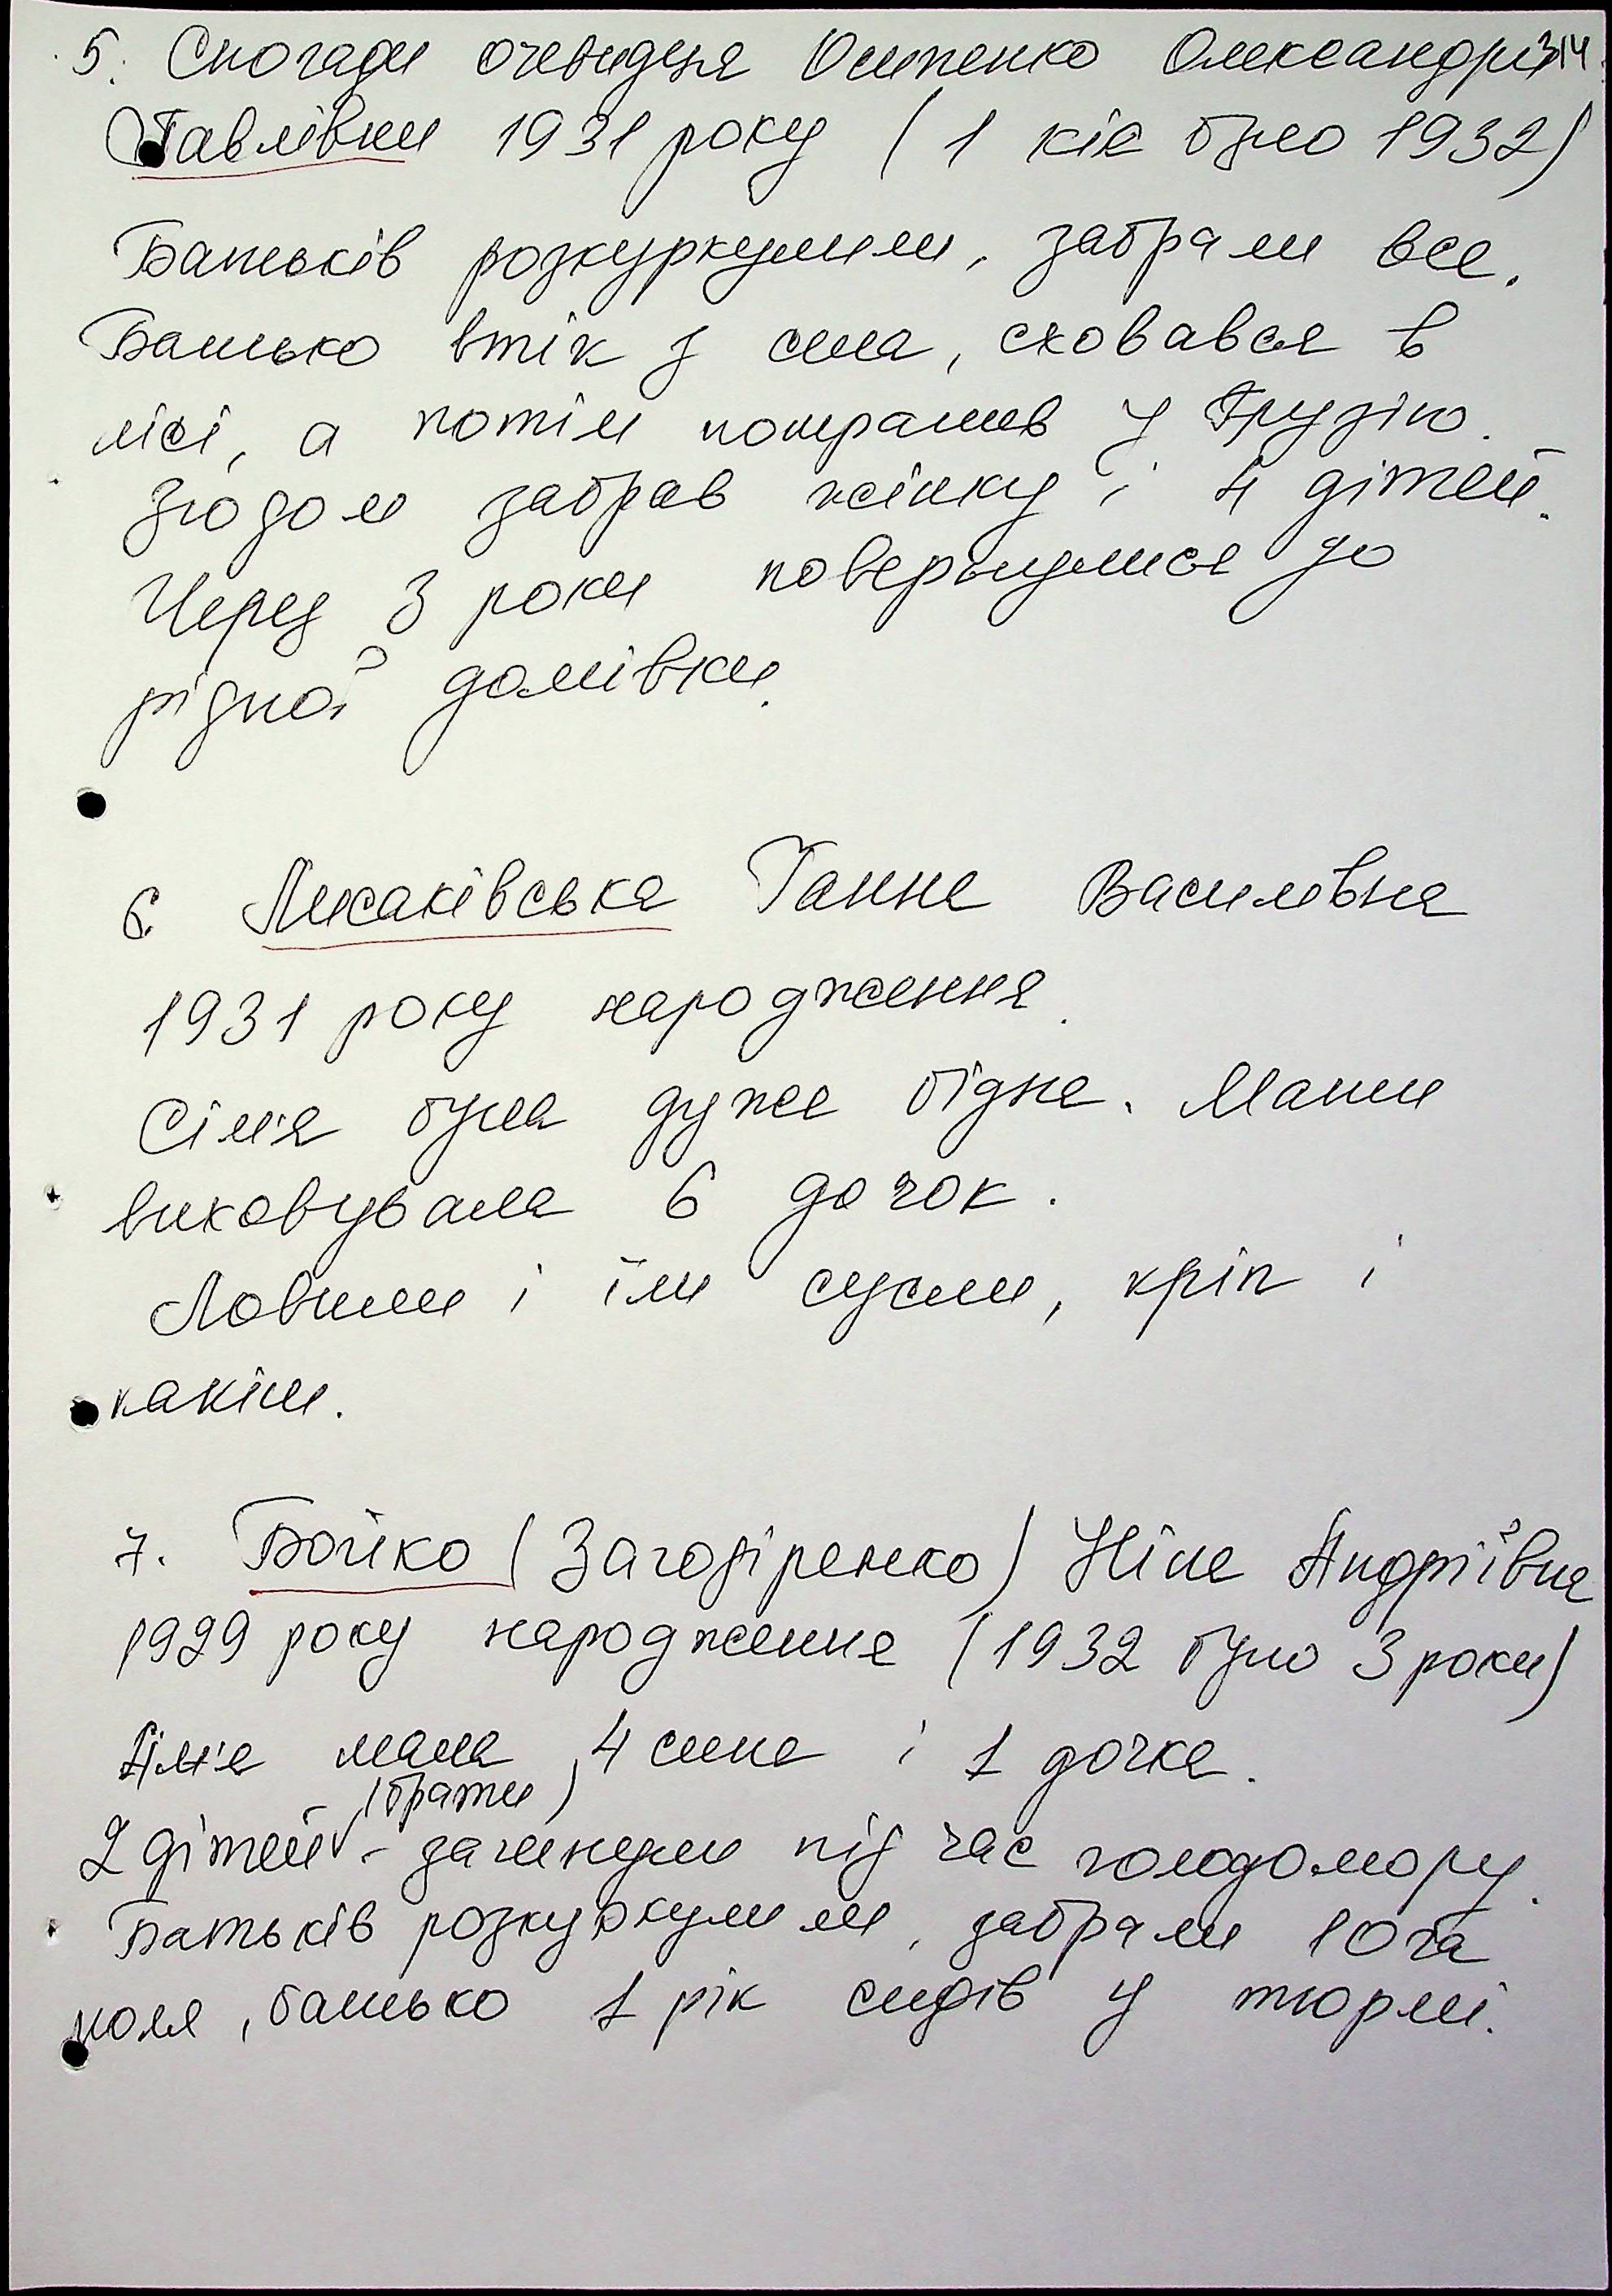 5. Спогади очевидця Осипенко Олександри 314
Павлівни 1931 року (1 рік було 1932)
Батьків розкуркулили, забрали все.
Батько втік з села, сховався в
лісі, а потім потрапив у Грузію.
Згодом забрав жінку і 4 дітей.
Через 3 роки повернулися до
рідної домівки.
6. Лисаківська Ганна Василівна
1931 року народження.
Сім'я була дуже бідна. Мати
виховувала 6 дочок.
Ловили і їли сусли, кріп і
7. Бойко (Загодіренко) Ніна Андріївна
1929 року народження (1932 було 3 роки)
Сім'я мала 4 сина і 1 дочка.
(брати)
2 дітей - загинули під час голодомору.
Батьків розкуркулили, забрали 10 га
поля, батько 1 рік сидів у тюрмі.